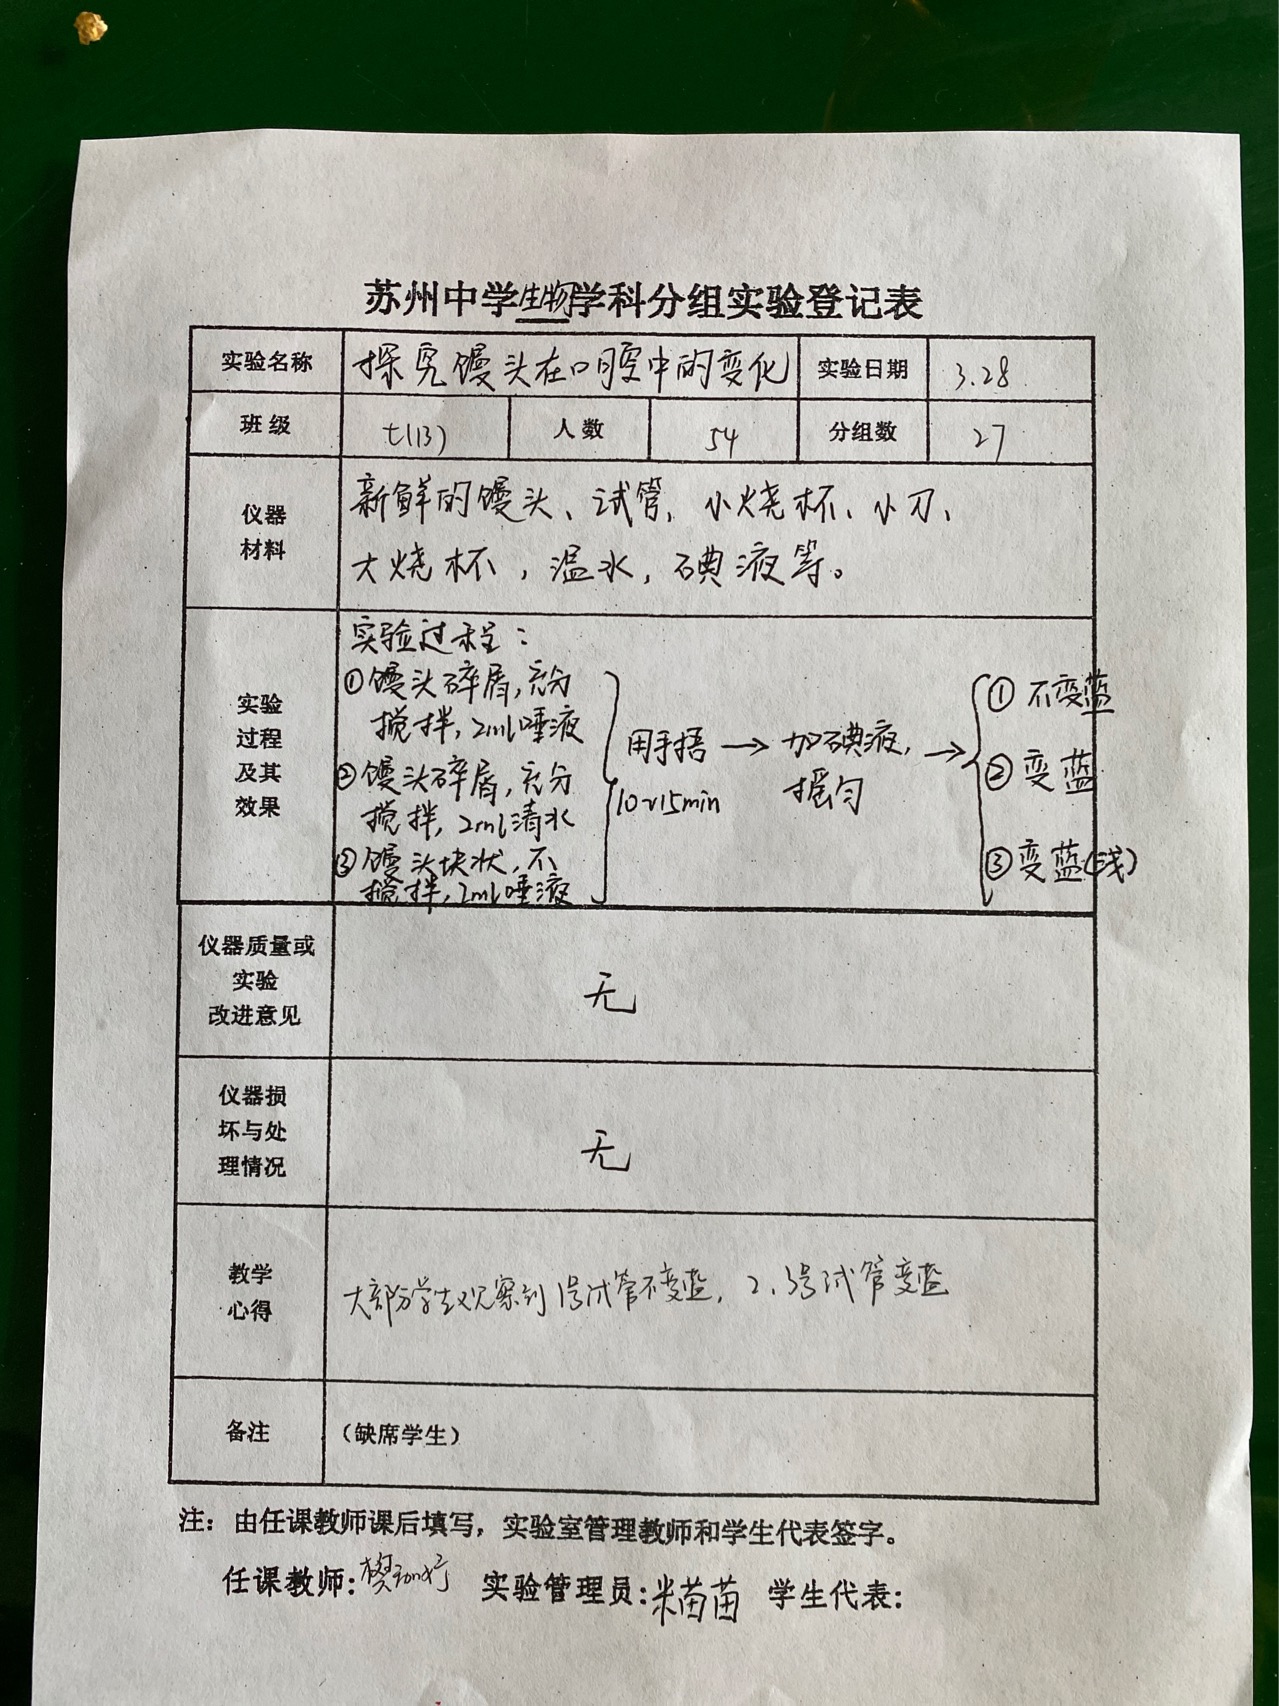 苏州中学生物学科分组实验登记表
实验名称 探究馒头在口腔中的变化 实验日期 3.28
班级 七(13) 人数 54 分组数 27
仪器
材料
新鲜的馒头、试管、小烧杯、小刀、
大烧杯，温水，碘液等。
实验
过程
及其
效果
实验过程：
①馒头碎屑，充分
搅拌，2ml唾液
②馒头碎屑，充分
搅拌，2ml清水
③馒头块状，不
搅拌，2ml唾液
用手捂
10~15min
→ 加碘液，
摇匀
→
① 不变蓝
② 变蓝
③ 变蓝(浅)
仪器质量或
实验
改进意见
无
仪器损
坏与处
理情况
无
教学
心得
大部分学生观察到1号试管不变蓝，2、3号试管变蓝
备注 （缺席学生）
注：由任课教师课后填写，实验室管理教师和学生代表签字。
任课教师: 实验管理员:米苗苗 学生代表: